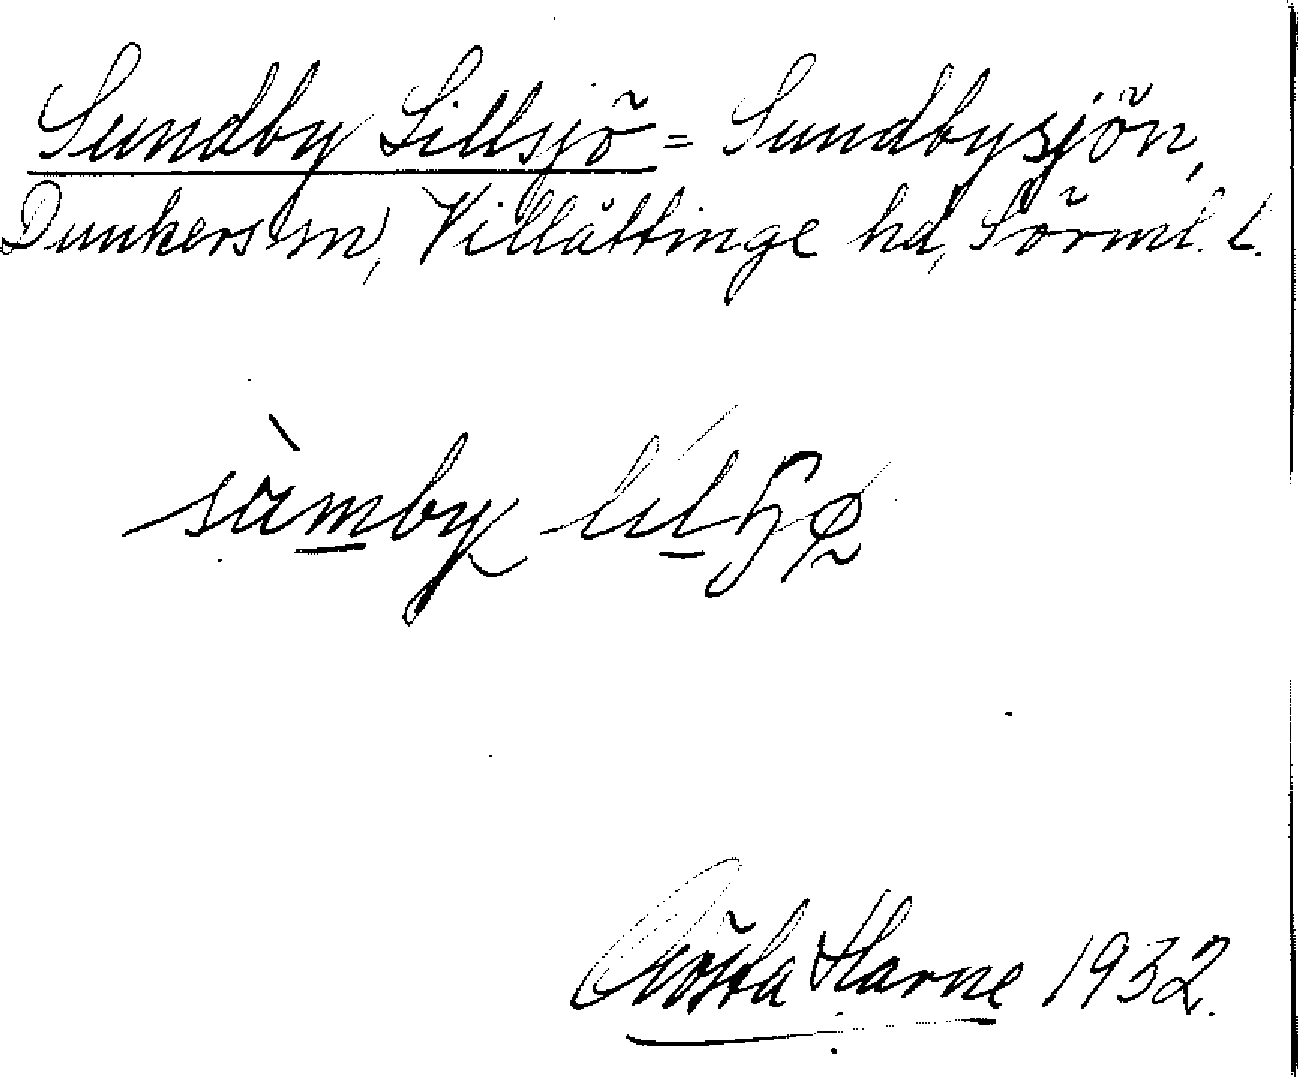 Sundby Lillsjö = Sundbysjön,
Dunkers sn, Villåttinge hd, Sörml. l.
Gösta Harne 1932.